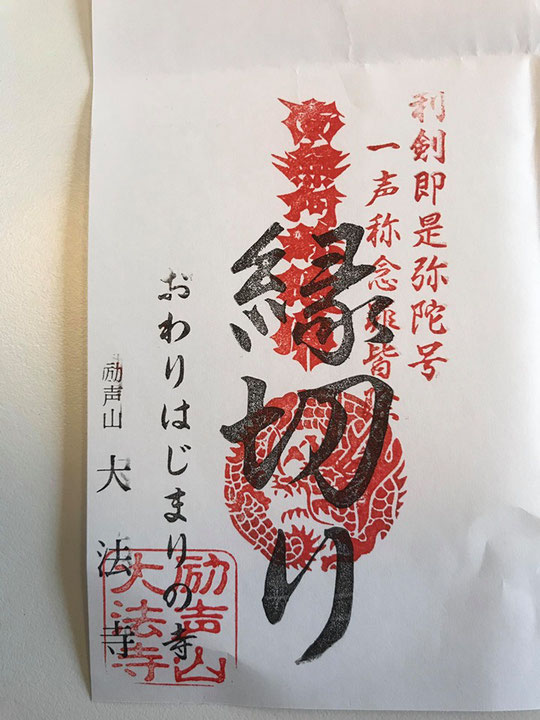 利剣即是弥陀号
一声称念罪皆除
南無阿弥陀仏
縁切り
おわりはじまりの寺
励声山 大法寺
励声山
大法寺